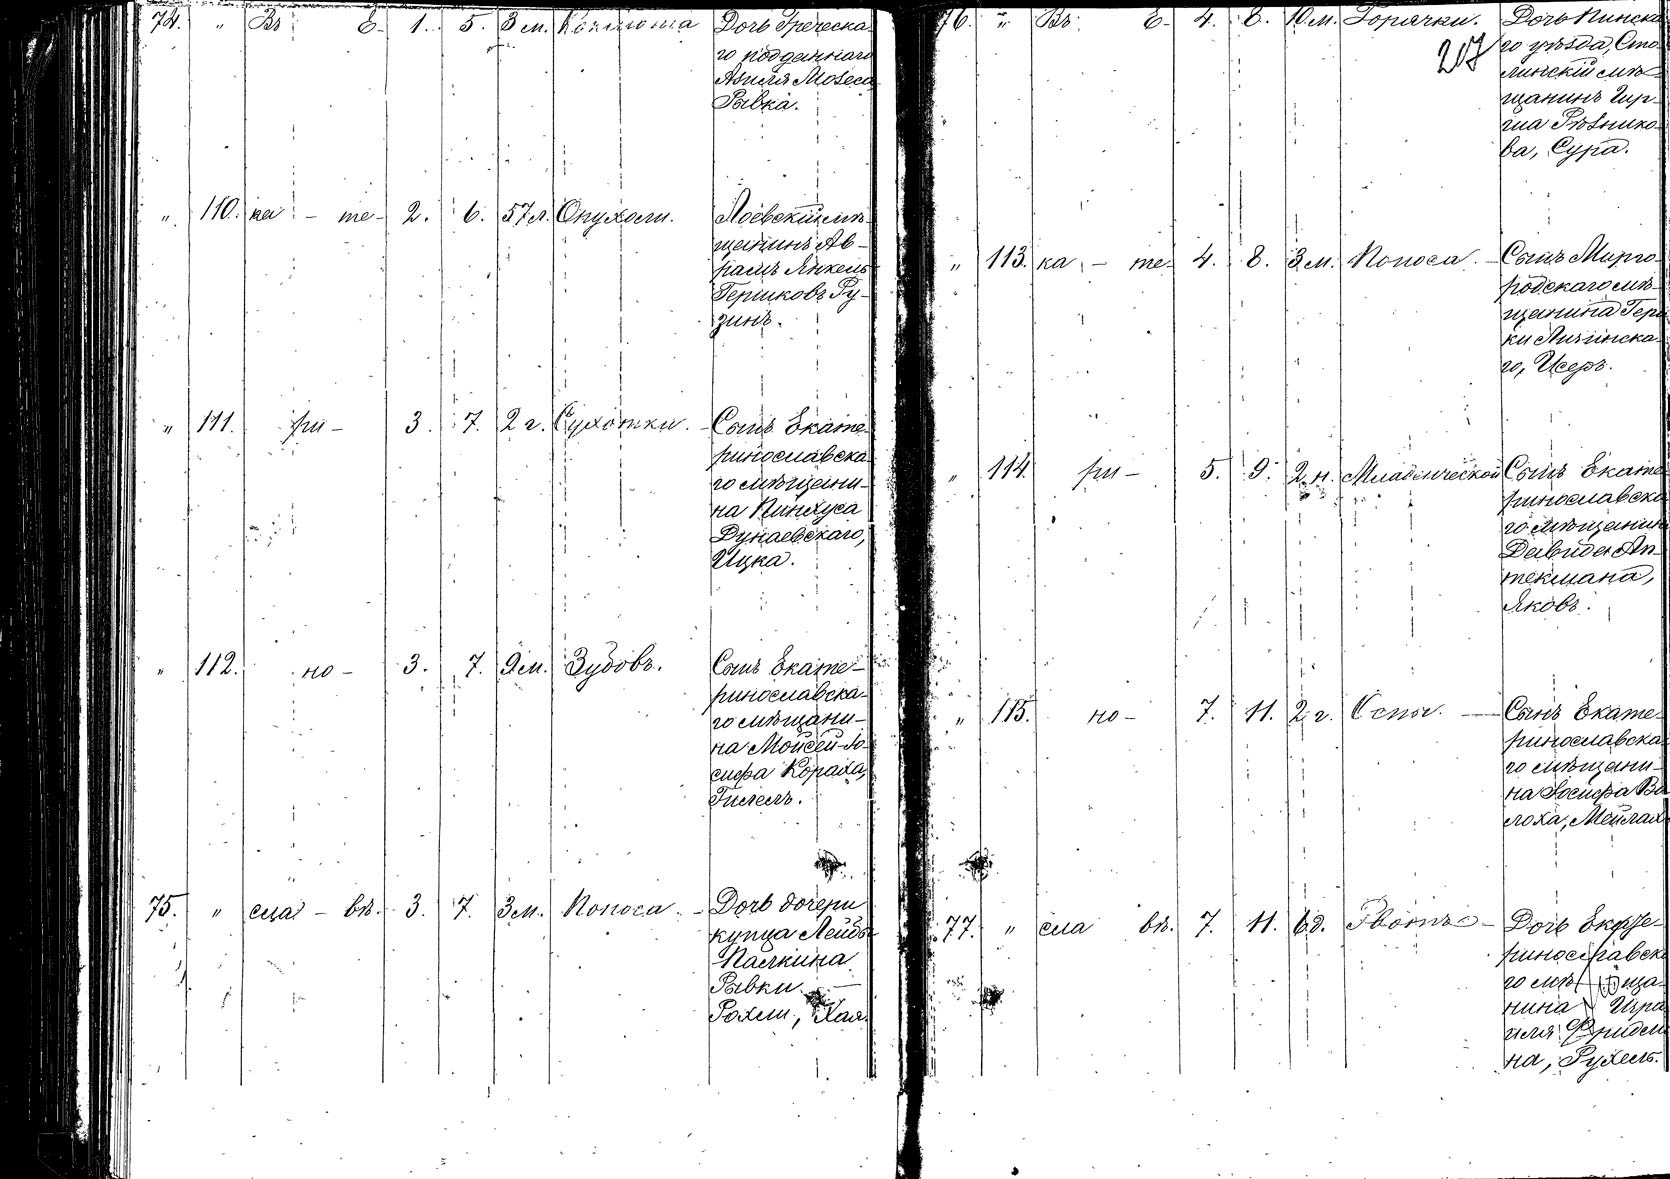 74. " Въ Е- 1. 5. 3 м. Дочь Греческа-
го подданнаго
Рывка.
" 110. ка - те- 2. 6. 57 л. Опухоли. Лоевскій мѣ-
щанинъ Ав-
рамъ Янкель
Гершковъ Ру-
зинъ.
" 111. ри- 3. 7. 2 г. Сухотки. - Сынъ Екате-
ринославска-
го мѣщани-
на Пинхуса
Дунаевскаго,
Ицка.
" 112. но- 3. 7. 9 м. Зубовъ. Сынъ Екате-
ринославска-
го мѣщани-
на Мойсей-Іо-
сифа Кораха,
Гилель.
75. " сла - вѣ. 3. 7. 3 м. Поноса. - Дочь дочери
купца Лейбы
Палкина
Рывки
Рохли, Хая.
76. " Въ Е- 4. 8. 10 м. Горячки. Дочь Пинска-
217
го уѣзда, Сто-
линскій мѣ-
щанинъ Гир-
ша Рѣзнико-
ва, Сура.
" 113. ка - те- 4. 8. 3 м. Поноса. - Сынъ Мирго-
родскаго мѣ-
щанина Гер-
ки Личинска-
го, Исеръ.
" 114. ри- 5. 9. 2 н. Младенческой Сынъ Екате-
ринославска-
го мѣщанина
Давида Ап-
текмана,
Яковъ.
" 115. но- 7. 11. 2 г. Оспы. - Сынъ Екате-
ринославска-
го мѣщани-
на Іосифа Во-
лоха, Мейлах
77. " сла вѣ. 7. 11. 6 д. Рвоты - Дочь Екате-
ринославска-
го мѣща-
нина Изра-
иля Фридма-
на, Рухель.